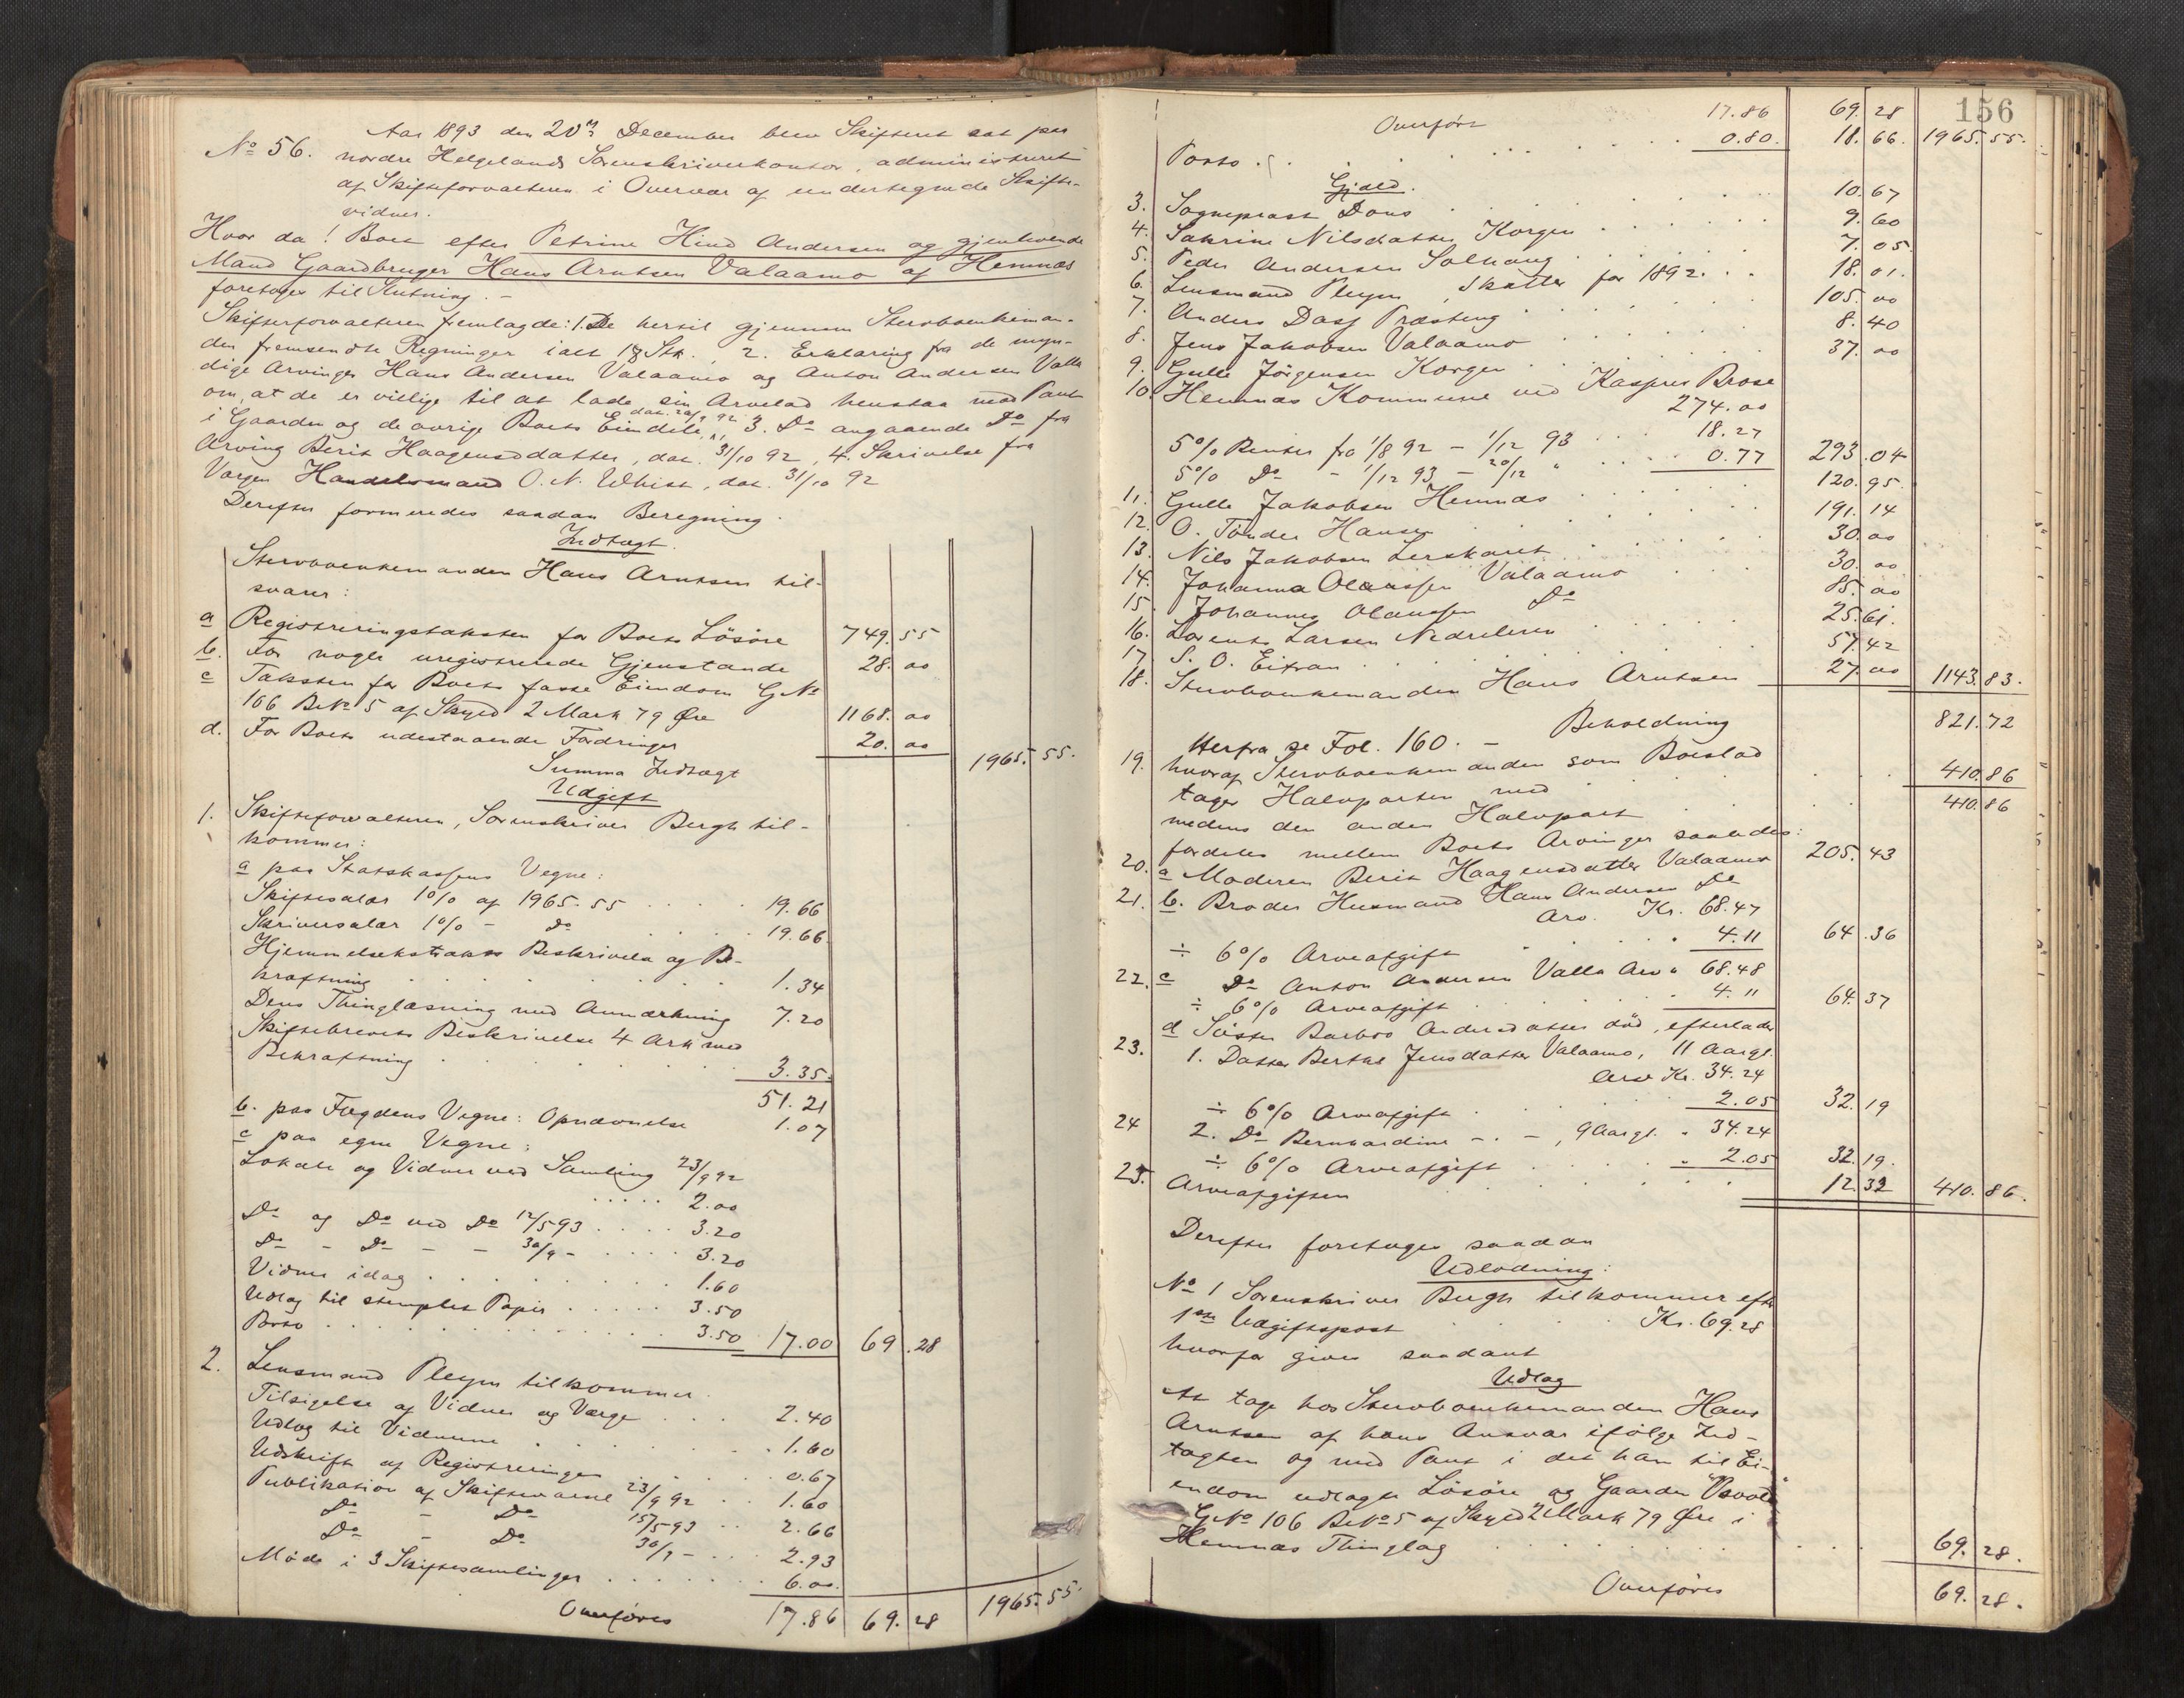 Aar 1893 den 20de December blev Skifteret sat paa
No 56. nordre Helgelands Sorenskriverkontor, administreret
af Skifteforvalteren i Overvær af undertegnede Skifte-
vidner.
Hvor da! Boet efter Petrine Hind Andersen og gjenlevende
Mand Gaardbruger Hans Arntsen Valaamo af Hemnæs
foretages til Slutning. -
Skifteforvalteren fremlagde: 1. De hertil gjennem Stervboenkeman-
den fremsendte Regninger ialt 18 Stk., 2. Erklæring fra de myn-
dige Arvinger Hans Andersen Valaamo og Anton Andersen Valla
om, at de er villige til at lade sin Arvelod henstaa med Pant
i Gaarden og de øvrige Boets Eiendele, dat. 20/9 92, 3. Do angaaende Do fra
Arving Berit Haagensdatter, dat. 31/10 92, 4. Skrivelse fra
Værgen Handelsmand O. N. Whist, dat. 31/10 92
Derefter formeredes saadan Beregning:
Indtægt.
Stervboenkemanden Hans Arntsen til-
svarer:
a Registreringstaksten for Boets Løsøre 749.55
b. For nogle uregistrerede Gjenstande 28.00
c Taksten for Boets faste Eiendom G No
106 B No 5 af Skyld 2 Mark 79 Øre 1168.00
d. For Boets udestaaende Fordringer 20.00
Summa Indtægt 1965.55.
Udgift
1. Skifteforvalteren, Sorenskriver Bergh til-
kommer:
a paa Statskassens Vegne:
Skiftesalær 1% af 1965.55 . . . . 19.66
Skriversalær 1% - Do . . . . 19.66.
Hjemmelsekstrakts Beskrivelse og Be-
kræftning . . . . . 1.34
Dens Thinglæsning med Anmærkning 7.20
Skiftebrevets Beskrivelse 4 Ark med
Bekræftning . . . . . 3.35.
51.21
b. paa Fogdens Vegne: Opnævnelse 1.07
c paa egne Vegne:
Lokale og Vidner ved Samling 23/9 92
. . . . . 2.00
Do og Do ved Do 12/5 93 . . . . 3.20
Do - Do - - 30/9 - . . . . 3.20
Vidner idag . . . . . 1.60
Udlæg til stemplet Papir . . . . . 3.50
Porto . . . . . 3.50 17.00 69.28
2. Lensmand Pleym tilkommer.
Tilsigelse af Vidner og Værge . . . 2.40
Udlæg til Vidnerne . . . . . 1.60
Udskrift af Registreringen . . . . 0.67
Publikation af Skiftevarsel 23/9 92 . . 1.60
Do - Do 15/5 93 . . 2.66
Do - Do 30/9 - . . . 2.93
Møde i 3 Skiftesamlinger . . . . . 6.00.
Overføres 17.86 69.28 1965.55.
156
Overført 17.86 69.28
Porto . . . . . 0.80. 18.66. 1965.55.
Gjæld.
3. Sogneprest Dons . . . . . 10.67
4. Sakrine Nilsdatter Korgen . . . . . 9.60
5. Peder Andersen Solhaug . . . . . 7.05.
6. Lensmand Pleym, Skatter for 1892. . . 18.01.
7. Anders Dass Præsteng . . . . . 105.00
8. Jens Jakobsen Valaamo . . . . . 8.40
9. Gulle Jørgensen Korgen . . . . . 37.00
10. Hemnæs Kommune ved Kasper Brose
274.00
5% Renter fra 1/8 92 - 1/12 93 . . . 18.27
5% Do - 1/12 93 - 20/12 " . . . . 0.77 293.04
11. Gulle Jakobsen Hemnæs . . . . . 120.95
12. O. Tønder Hansen . . . . . 191.14
13. Nils Jakobsen Lerskaret . . . . . 30.00
14. Johanna Olaussen Valaamo . . . 30.00
15. Johannes Olaussen Do 85.00
16. Lorents Larsen Nedreleren . . . . . 25.61.
17. S. O. Eitran . . . . . 57.42
18. Stervboenkemanden Hans Arntsen 27.00 1143.83.
Beholdning 821.72
Herfra se Fol. 160. -
19. hvoraf Stervboenkemanden som Boeslod
tager Halvparten med . . . . . 410.86
medens den anden Halvpart . . . 410.86
fordeles mellem Boets Arvinger saaledes:
20. a Moderen Berit Haagensdatter Valaamo 205.43
21. b. Broder Husmand Hans Andersen Do
Arv. Kr. 68.47
÷ 6% Arveafgift . . . . . 4.11 64.36
22. c Do Anton Andersen Valla Arv " 68.48
÷ 6% Arveafgift . . . . . 4.11 64.37
d Søster Barbro Andersdatter død, efterlader
23. 1. Datter Berthe Jensdatter Valaamo, 11 Aargl.
Arv Kr. 34.24
÷ 6% Arveafgift . . . . . 2.05 32.19
24 2. Do Bernhardine - . - , 9 Aargl. " 34.24
÷ 6% Arveafgift . . . . . " 2.05 32.19.
25. Arveafgiften . . . . . 12.32 410.86.
Derefter foretages saadan
Udlodning:
No 1 Sorenskriver Bergh tilkommer efter
1ste Udgiftspost . . . . . Kr. 69.28
hvorfor gives saadant
Udlæg
At tage hos Stervboenkemanden Hans
Arntsen af hans Ansvar ifølge Ind-
tægten og med Pant i det ham til Ei-
endom udlagte Løsøre og Gaarden
G No 106 B No 5 af Skyld 2 Mark 79 Øre i
Hemnæs Thinglag . . . . . 69.28.
Overføres 69.28.